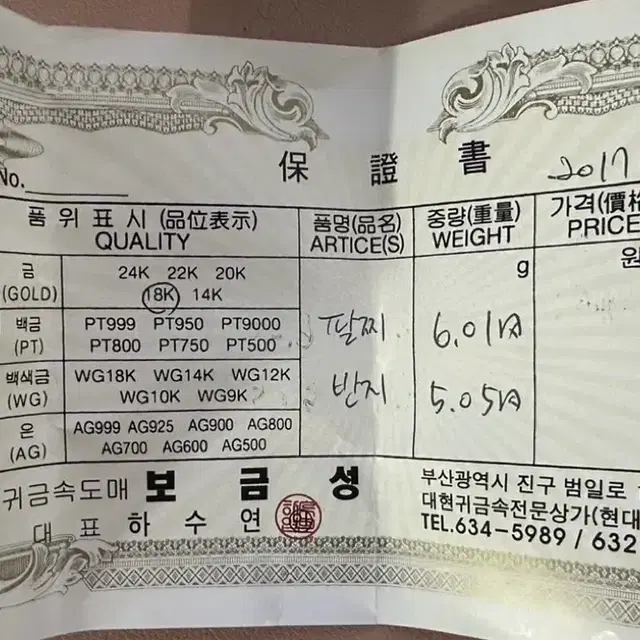 保證書
2017
No.
품위표시 (品位表示) 품명(品名) 중량(重量) 가격(價格
QUALITY ARTICE(S) WEIGHT PRICE
금 24K 22K 20K g 원
(GOLD) 18K 14K
백금 PT999 PT950 PT9000 팔찌 6.01
(PT) PT800 PT750 PT500
백색금 WG18K WG14K WG12K 반지 5.05
(WG) WG10K WG9K
은 AG999 AG925 AG900 AG800
(AG) AG700 AG600 AG500
귀금속도매 보금성 부산광역시 진구 범일로
대표 하수연 대현귀금속전문상가(현대
TEL.634-5989 / 632